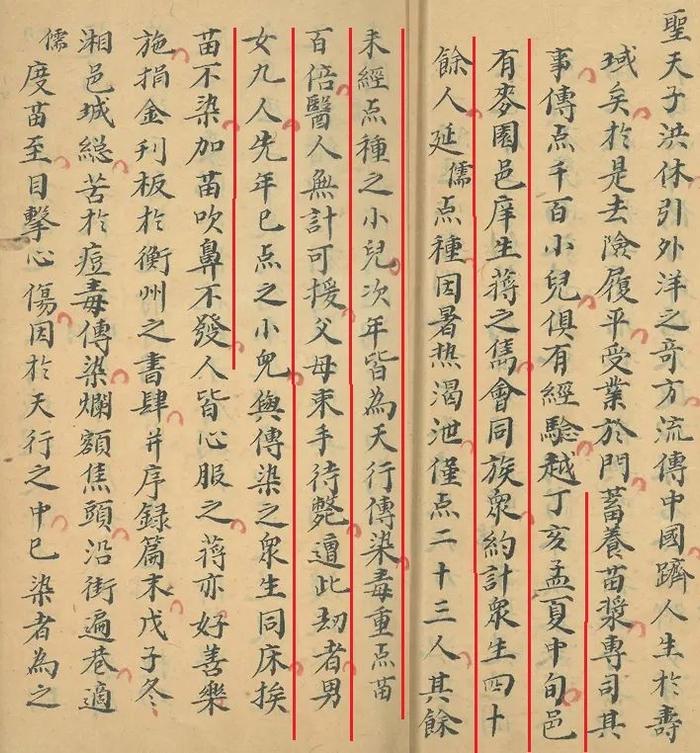 聖天子洪休引外洋之奇方流傳中國躋人生於壽
域矣於是去險履平受業於門蓄養苗漿專司其
事傳点千百小兒俱有經驗越丁亥孟夏中旬邑
有麥園邑庠生蔣之雋會同族衆約計衆生四十
餘人延儒点種因暑热渴泄僅点二十三人其餘
未經点種之小兒次年皆為天行傳染毒重点苗
百倍醫人無計可援父母束手待斃遭此劫者男
女九人先年已点之小兒與傳染之衆生同床挨
苗不染加苗吹鼻不發人皆心服之蔣亦好善樂
施捐金刋板於衡州之書肆并序録篇末戊子冬
湘邑城総苦於痘毒傳染爛額焦頭沿街遍巷適
儒度苗至目擊心傷因於天行之中已染者為之